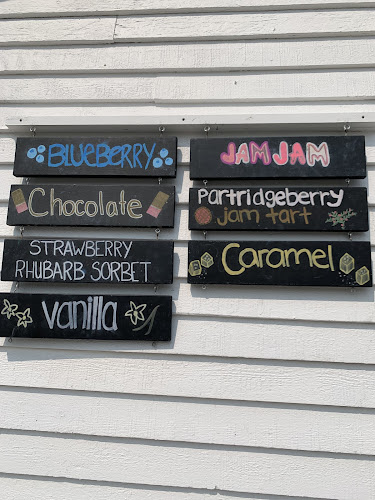 BLUEBERRY
Chocolate
STRAWBERRY
RHUBARB SORBET
vanilla
JAMJAM
partridgeberry
jam tart
Caramel